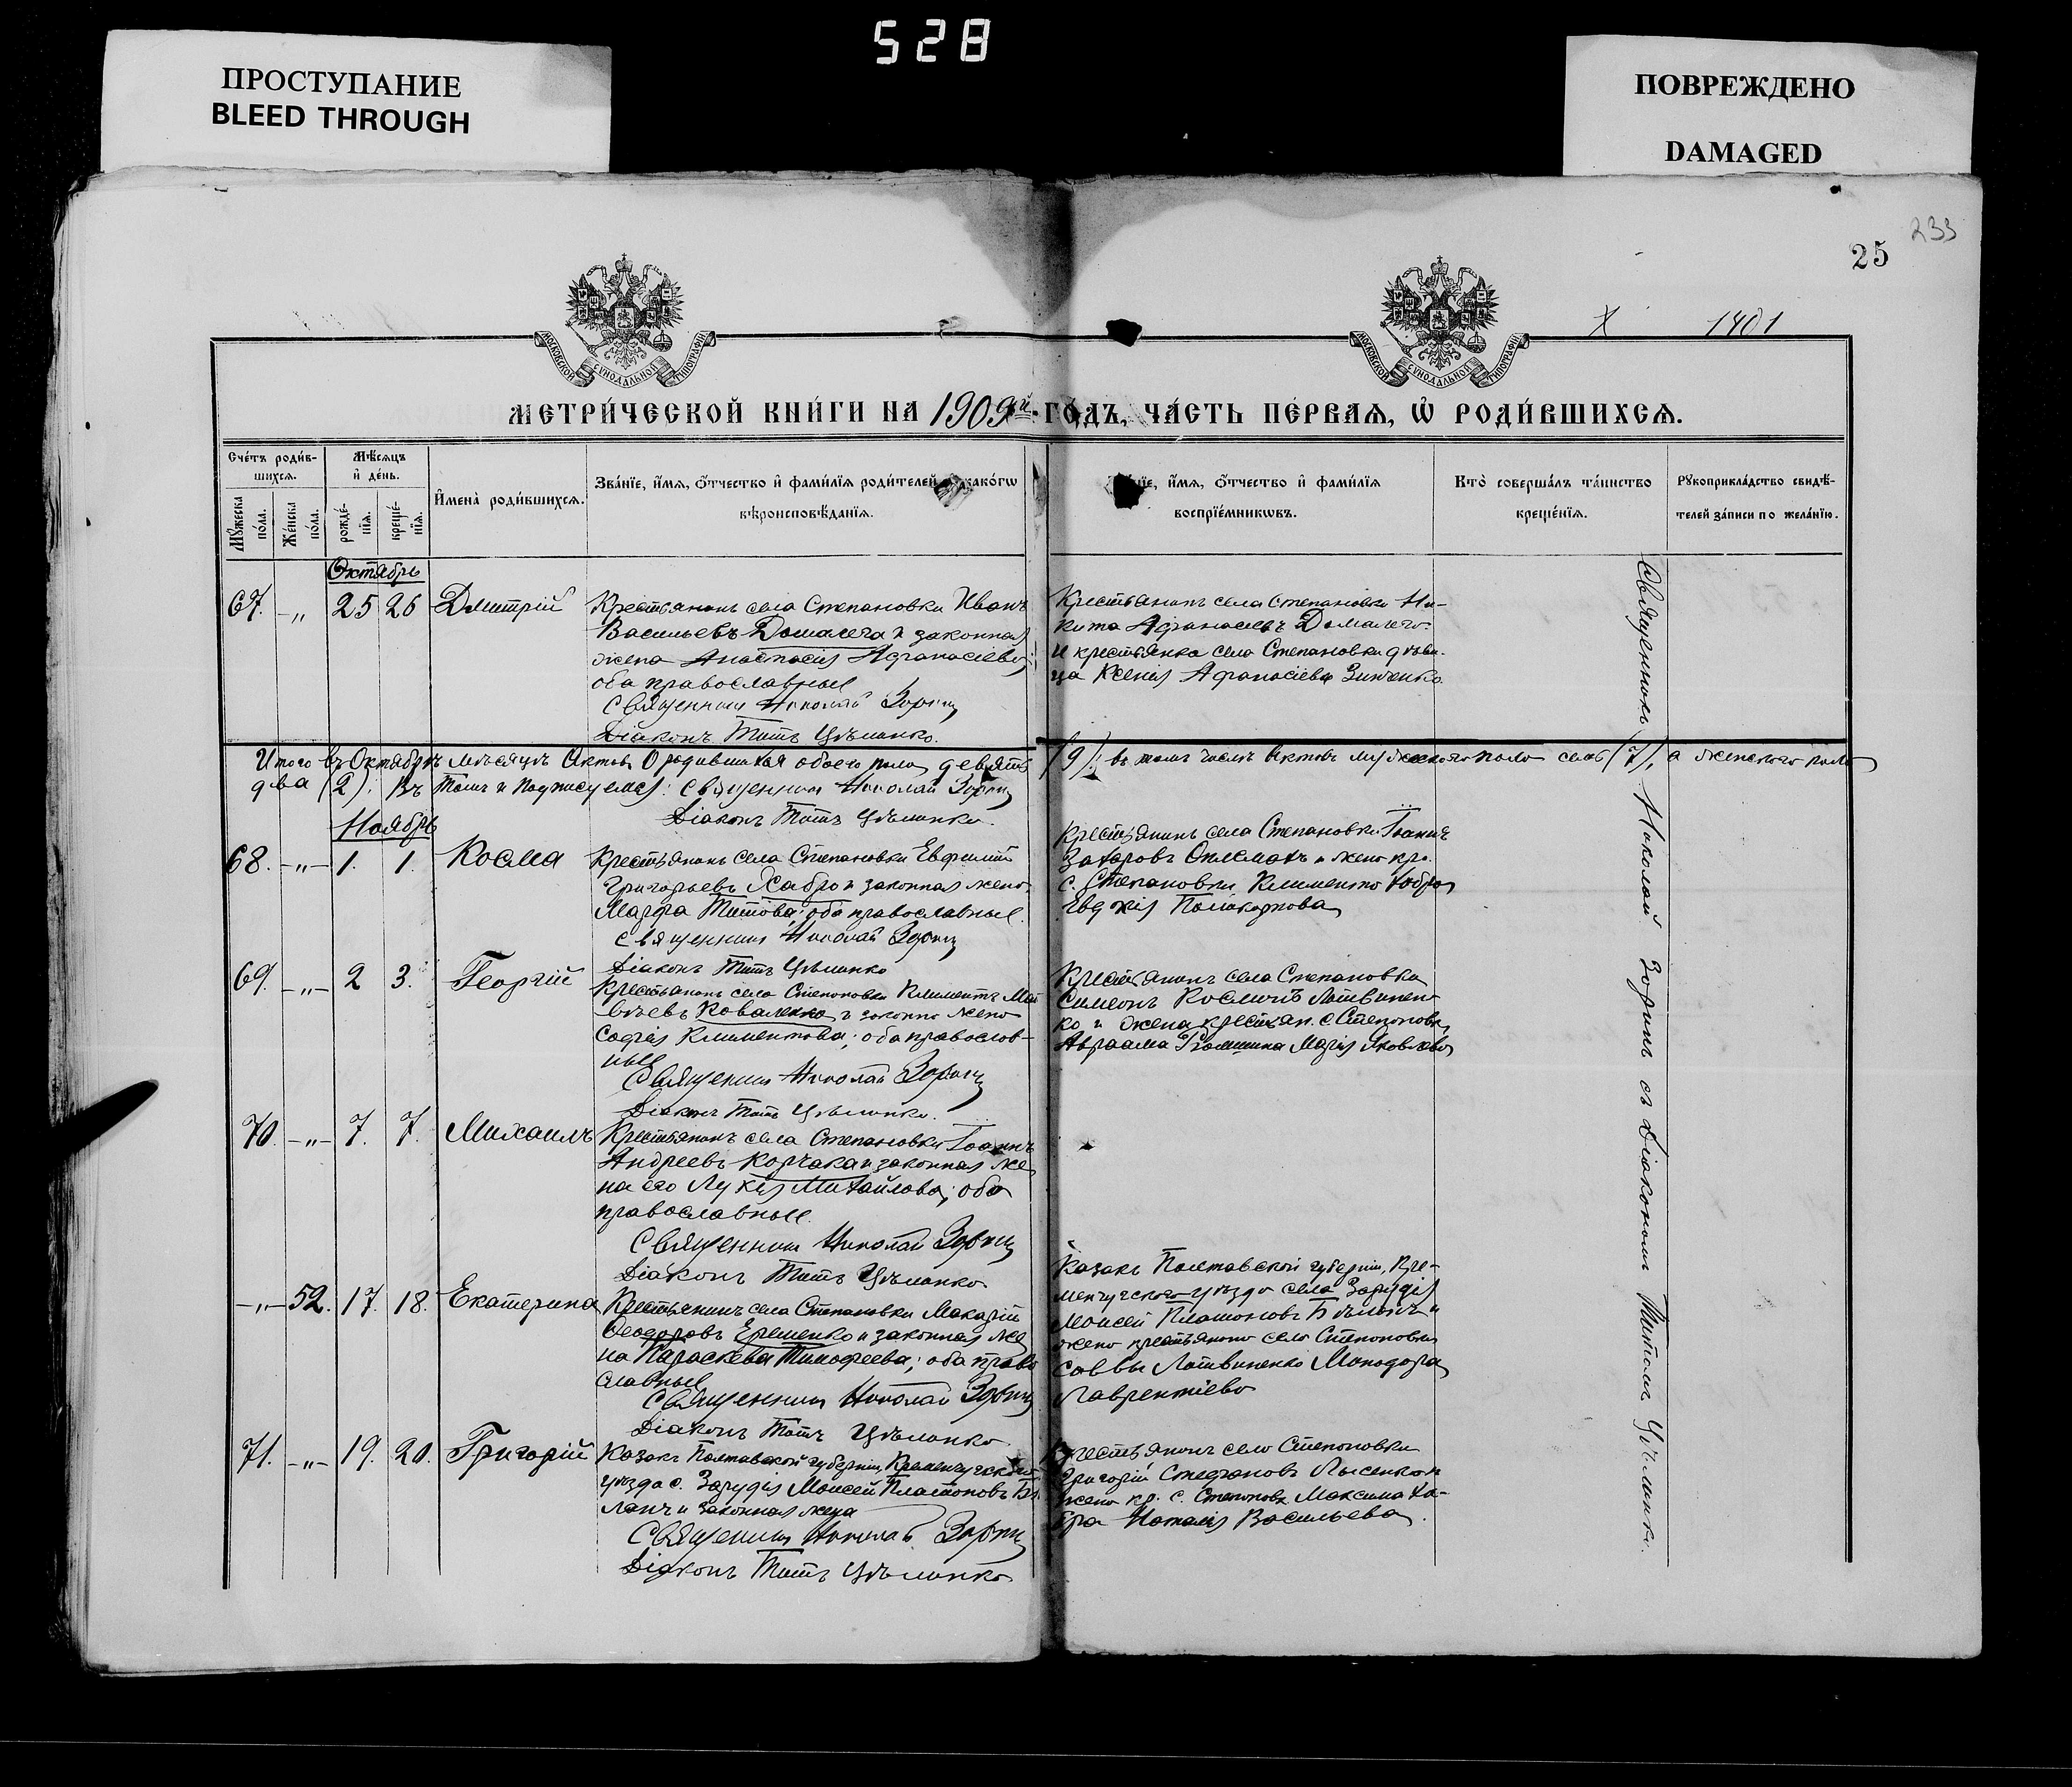 528
ПРОСТУПАНИЕ
BLEED THROUGH
ПОВРЕЖДЕНО
DAMAGED
233
25
1401
МОСКОВСКОЙ СѴНОДАЛЬНОЙ ТИПОГРАФІИ
МОСКОВСКОЙ СѴНОДАЛЬНОЙ ТИПОГРАФІИ
МЕТРИ́ЧЕСКОЙ КНИ́ГИ НА 1909й ГО́ДЪ, ЧА́СТЬ ПЕ́РВАѦ, Ѡ҆ РОДИ́ВШИХСѦ.
Сче́тъ роди́в-
шихсѧ.
Мꙋ́жеска по́ла.
Же́нска по́ла.
Мѣ́сѧцъ
и҆ де́нь.
рожде́-
нїѧ.
креще́-
нїѧ.
И҆мена̀ роди́вшихсѧ.
Зва́нїе, и҆́мѧ, ѻ҆́тчество и҆ фами́лїѧ роди́телей како́гѡ
вѣроисповѣ́данїѧ.
и҆́мѧ, ѻ҆́тчество и҆ фами́лїѧ
воспрїе́мникѡвъ.
Кто̀ соверша́лъ та́инство
креще́нїѧ.
Рꙋкоприкла́дство свидѣ́-
телей за́писи по жела́нїю.
Октябрь
67. -„ 25 26 Дмитрій
Крестьянинъ села Степановки Иванъ
Васильевъ Домалега и законная
жена Анастасія Афанасіева
оба православные
Священникъ Николай Зоринъ
Діаконъ Титъ Цѣманко.
Крестьянинъ села Степановки Ни-
кита Афанасіевъ Домалега
и крестьянка села Степановки дѣви-
ца Ксенія Афанасіева Зинченко
Итого въ Октябрѣ мѣсяцѣ Актовъ О родившихся обоего пола девять (9); въ томъ числѣ Актовъ мужескаго пола семь (7), а женскаго пола
два (2). Въ томъ и подписуемся: Священникъ Николай Зоринъ
Діаконъ Титъ Цѣманко.
Ноябрь
68. -„- 1. 1. Косма
Крестьянинъ села Степановки Евфимій
Григорьевъ Хабро и законная жена
Марфа Титова; оба православные.
Священникъ Николай Зоринъ
Діаконъ Титъ Цѣманко
Крестьянинъ села Степановки Іоаннъ
Захаровъ и жена кр.
с. Степановки Климента Хабра
Поликарпова
69. -„- 2 3. Георгій
Крестьянинъ села Степановки Климентъ Мат
вѣевъ Коваленко и законна жена
Софія Климентова; оба православ-
ные
Священникъ Николай Зоринъ
Діаконъ Титъ Цѣманко.
Крестьянинъ села Степановки
Симеонъ Косминъ Литвинен
ко и жена крестьян. с Степановки
Авраама Марія Яковлева
70. -„- 7. 7. Михаилъ
Крестьянинъ села Степановки Іоаннъ
Андреевъ Корчака и законная же
на его Лукія Михайлова; оба
православные.
Священникъ Николай Зоринъ
Діаконъ Титъ Цѣманко
-„- 52. 17. 18. Екатерина
Крестьянинъ села Степановки Макарій
Феодоровъ Еременко и законная же
на Параскева Тимофеева; оба право
славные
Священникъ Николай Зоринъ
Діаконъ Титъ Цѣманко
Казакъ Полтавской губерніи, Кре-
менчугскаго уѣзда села Зарудія
Моисей Платоновъ Бѣланъ и
жена крестьянина села Степановки
Саввы Литвиненко Минодора
Лаврентіева
71. -„- 19. 20. Григорій
Казакъ Полтавской губерніи, Кременчугскаго
уѣзда с. Зарудія Моисей Платоновъ Бѣ
ланъ и законная жена
Священникъ Николай Зоринъ
Діаконъ Титъ Цѣманко
Крестьянинъ села Степановки
Григорій Стефановъ Лысенко и
жена кр. с. Степановки Максима Ха-
бра Наталія Васильева.
Священникъ Николай Зоринъ съ Діакономъ Титомъ Цѣманко.